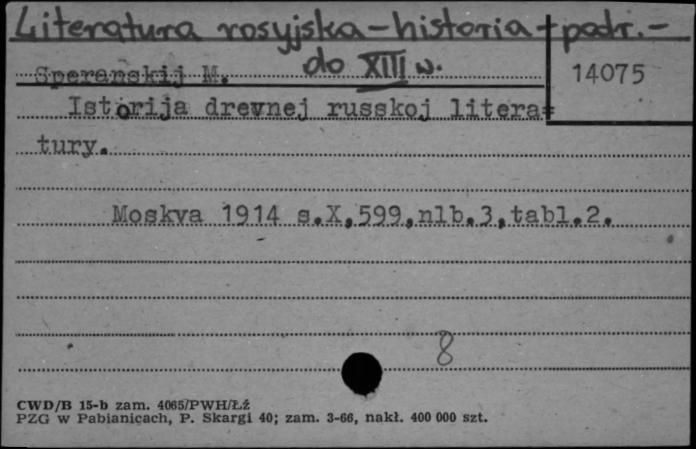 Literatura rosyjska-historia+podr.-
do XIII w.
Speranskij M.
14075
Istorija drevnej russkoj litera=
tury.
Moskva 1914 s.X,599,nlb.3,tabl.2.
8
CWD/B 15-b zam. 4065/PWH/Łź
PZG w Pabianicach, P. Skargi 40; zam. 3-66, nakł. 400 000 szt.